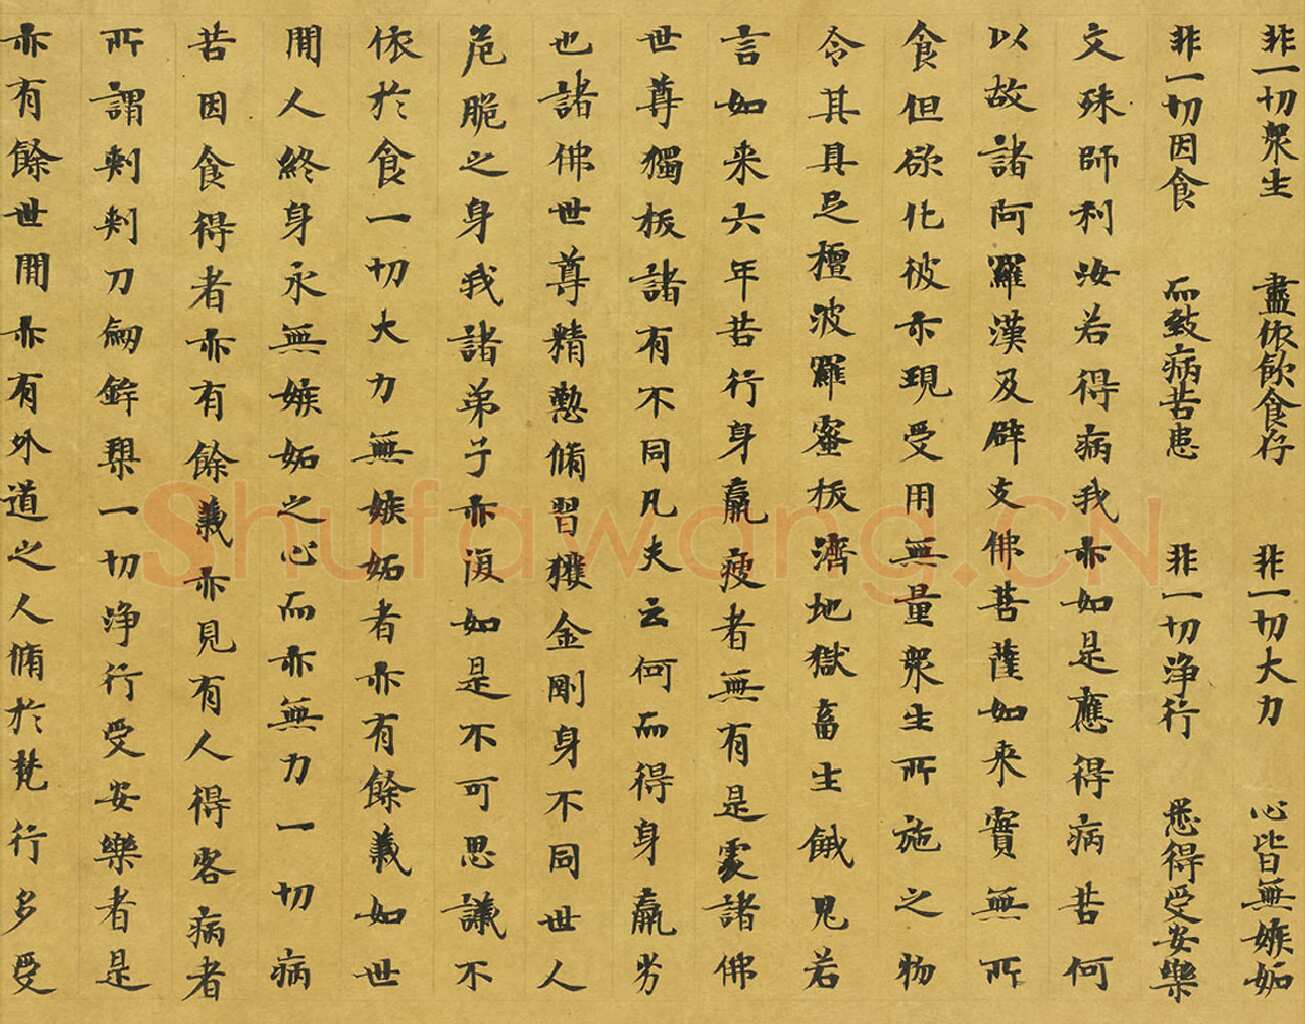 非一切衆生 盡依飲食存 非一切大力 心皆無嫉妬
非一切因食 而致病苦患 非一切淨行 悉得受安樂
文殊師利汝若得病我亦如是應得病苦何
以故諸阿羅漢及辟支佛菩薩如來實無所
食但欲化彼亦現受用無量衆生所施之物
令其具足檀波羅蜜拔濟地獄畜生餓鬼若
言如來六年苦行身羸瘦者無有是處諸佛
世尊獨拔諸有不同凡夫云何而得身羸劣
也諸佛世尊精懃脩習獲金剛身不同世人
危脆之身我諸弟子亦復如是不可思議不
依於食一切大力無嫉妬者亦有餘義如世
間人終身永無嫉妬之心而亦無力一切病
苦因食得者亦有餘義亦見有人得客病者
所謂刺刺刀劒鉾槊一切淨行受安樂者是
亦有餘世間亦有外道之人脩於梵行多受
Shufawang.CN